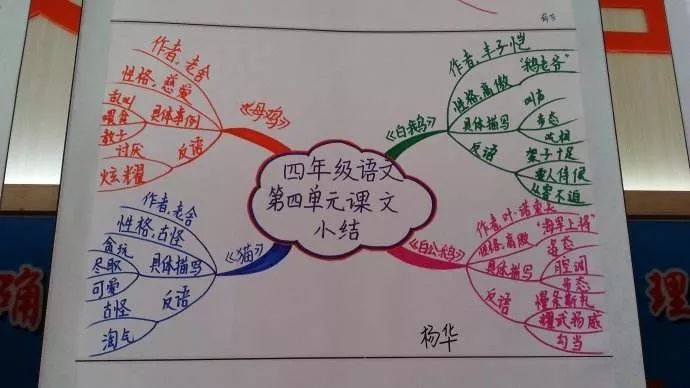 四年级语文
第四单元课文
小结
《母鸡》
作者，老舍
性格，慈爱
具体事例
乱叫
喂食
教士
反语
讨厌
炫耀
《猫》
作者，老舍
性格，古怪
具体描写
贪玩
尽职
可爱
反语
古怪
淘气
《白鹅》
作者，丰子恺
"鹅老爷"
性格，高傲
具体描写
叫声
步态
吃相
反语
架子十足
要人侍候
从容不迫
《白公鹅》
作者，叶·诺索夫
"海军上将"
性格，高傲
具体描写
姿态
腔调
步态
反语
慢条斯礼
耀武扬威
勾当
杨华
确
理